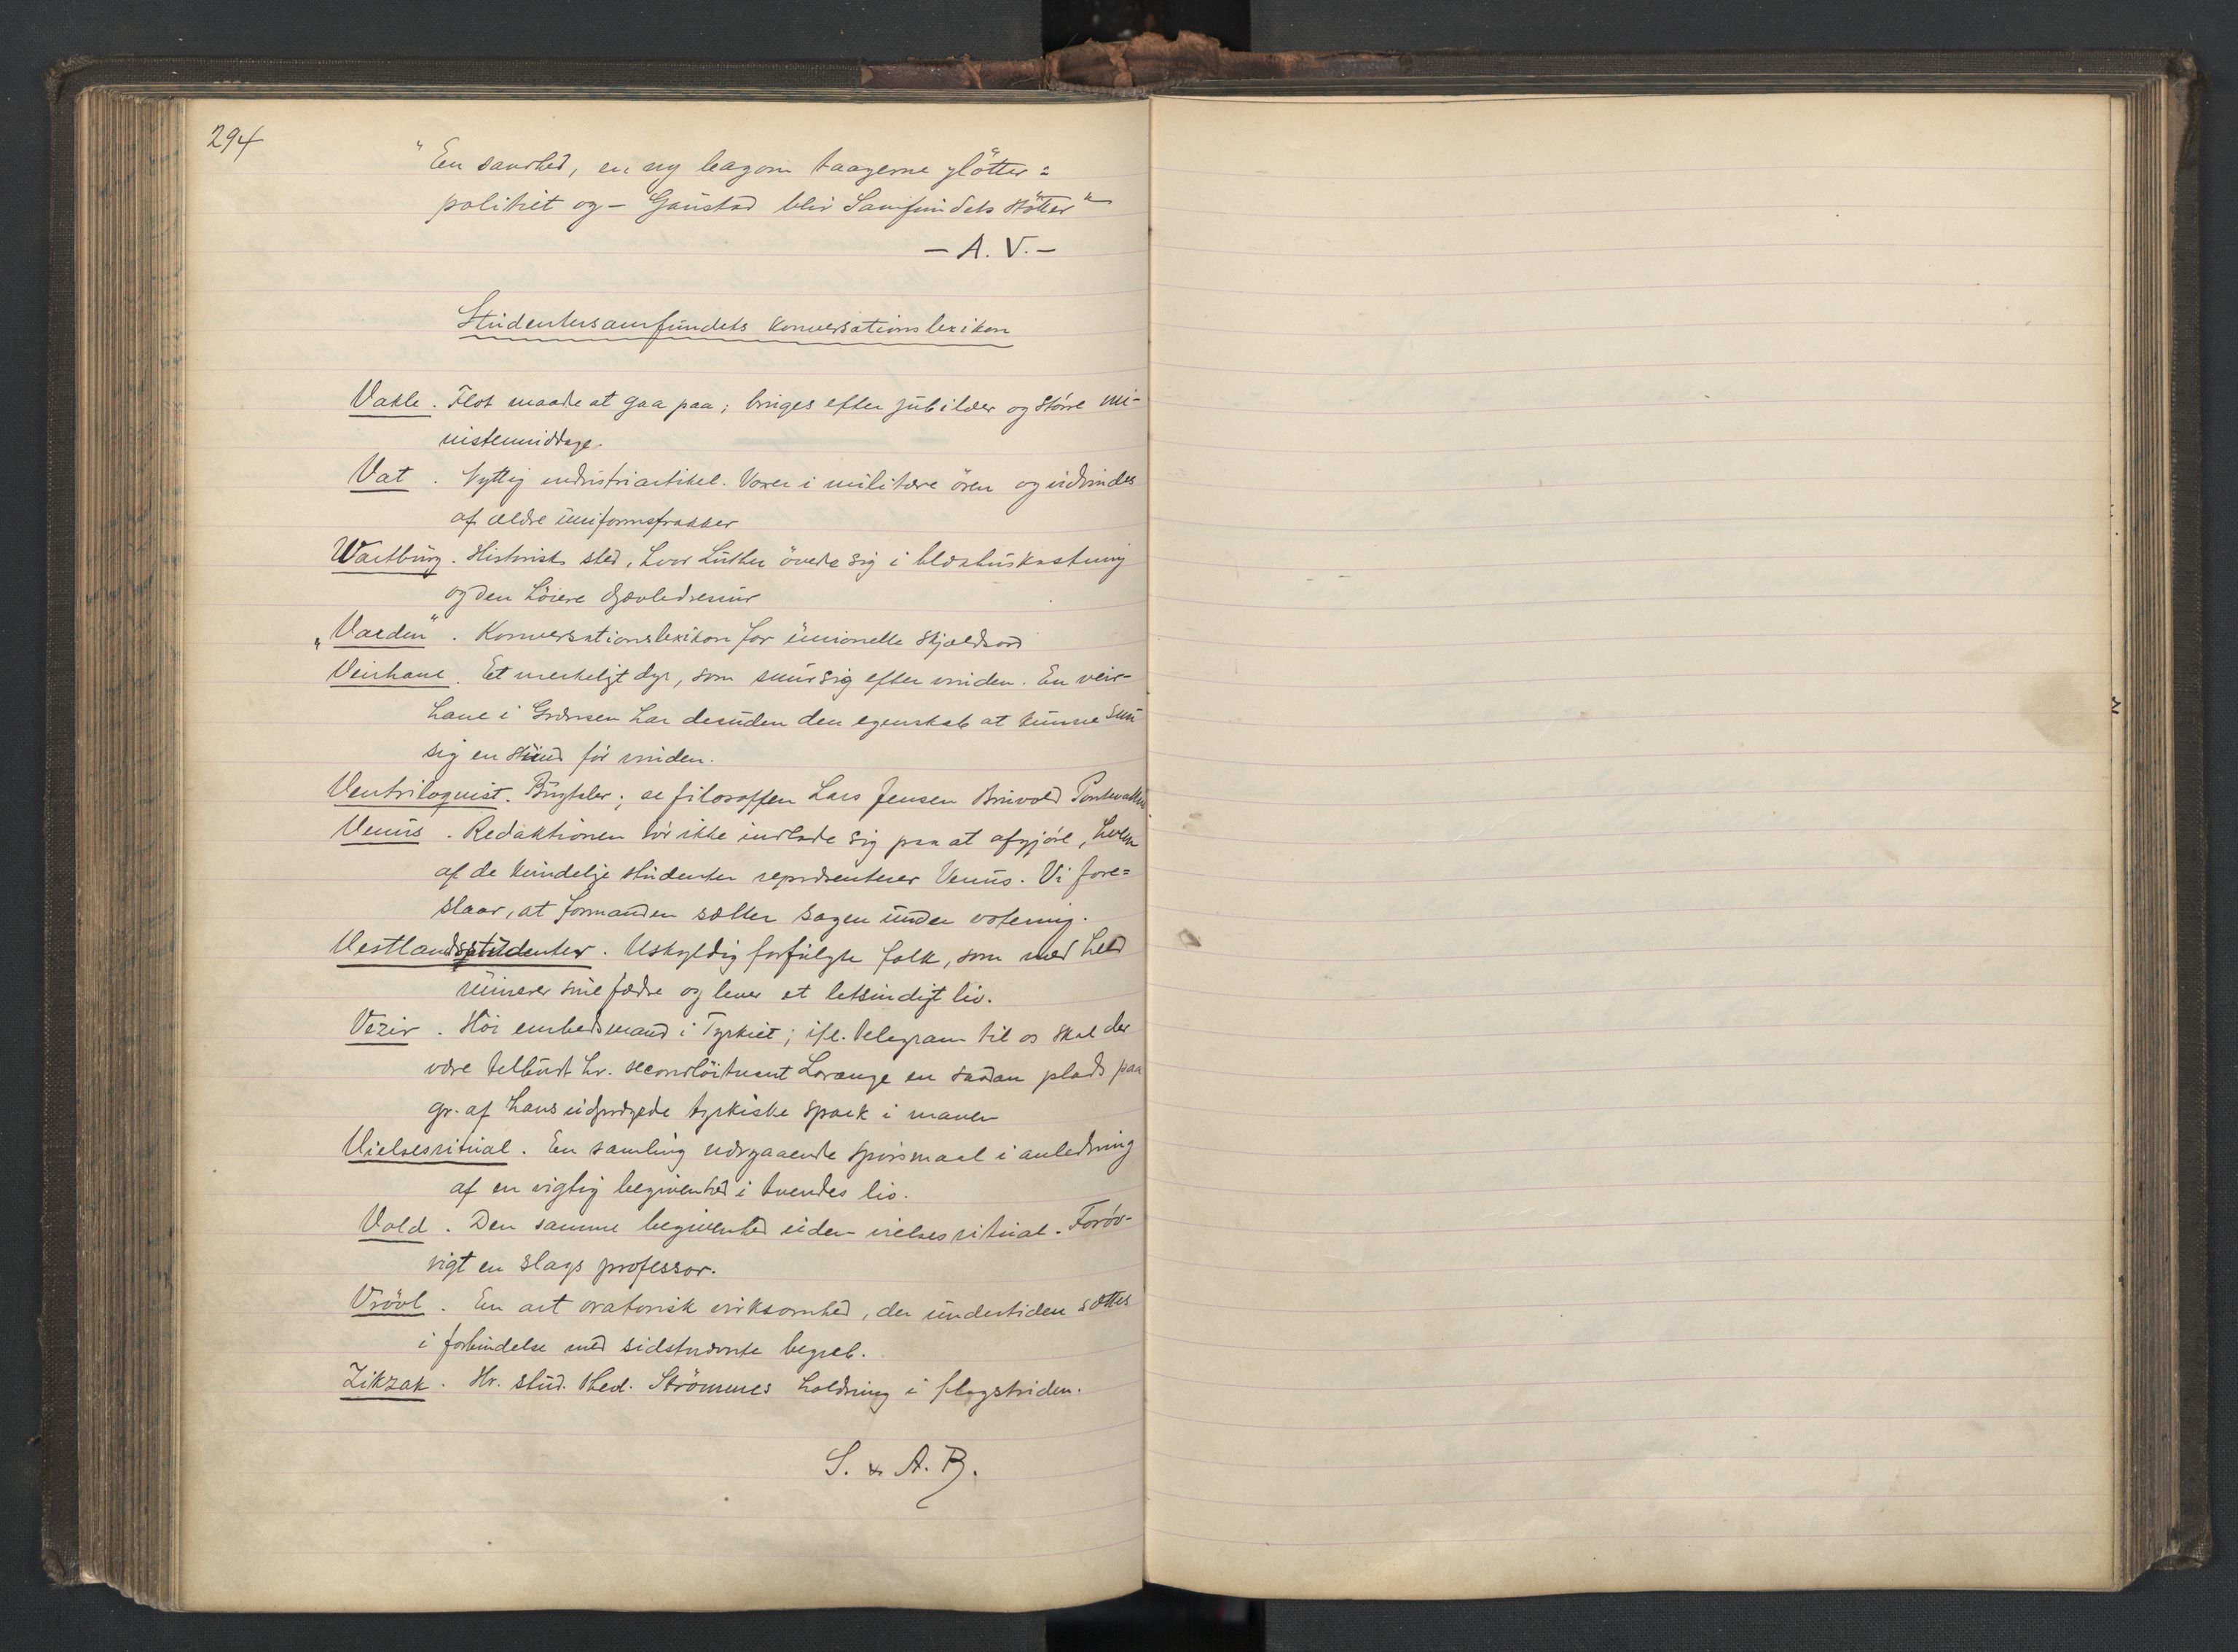 294
"En sandhed, en ny bagom taagerne glötter:
politiet og – Gaustad blir Samfundets støtter"
– A. V. –
Studentersamfundets konversationslexikon
Vakle. Flot maade at gaa paa; bruges efter jubilæer og større mi-
nistermiddage.
Vat. Nyttig industriartikel. Voxer i militære ören og vidvindes
af ældre uniformsfrakker
Wartburg. Historisk sted, hvor Luther övede sig i blækhuskastning
og den høiere djævledressur
„Varden". Konversationslexikon for unionelle skjældsord
Veirhane. Et merkeligt dyr, som snur sig efter vinden. En veir-
hane i Grænsen har desuden den egenskab at kunne snu
sig en stund før vinden.
Ventriloquist. Bugtaler; se filosoffen Lars Jensen Bruvold
Venus. Redaktionen tør ikke indlade sig paa at afgjøre, hvem
af de kvindelige studenter repræsenterer Venus. Vi fore=
slaar, at formanden sætter sagen under votering.
Vestlandsstudenter. Uskyldig forfulgte folk, som med held
ruinerer sine fædre og lever et letsindigt liv.
Vezir. Høi embedsmand i Tyrkiet; ifl. telegram til os skal der
være tilbudt hr. secondlöitnant Lorange en saadan plads paa
gr. af hans udprægede tyrkiske spark i maven
Vielsesritual. En samling nærgaaende spørsmaal i anledning
af en vigtig begivenhed i tvendes liv.
Vold. Den samme begivenhed uden vielsesritual. Forøv-
rigt en slags professor.
Vrövl. En art oratorisk virksomhed, der undertiden sættes
i forbindelse med sidstnævnte begreb.
Zikzak. Hr. stud. theol. Strömmes holdning i flagstriden.
S. & A. B.